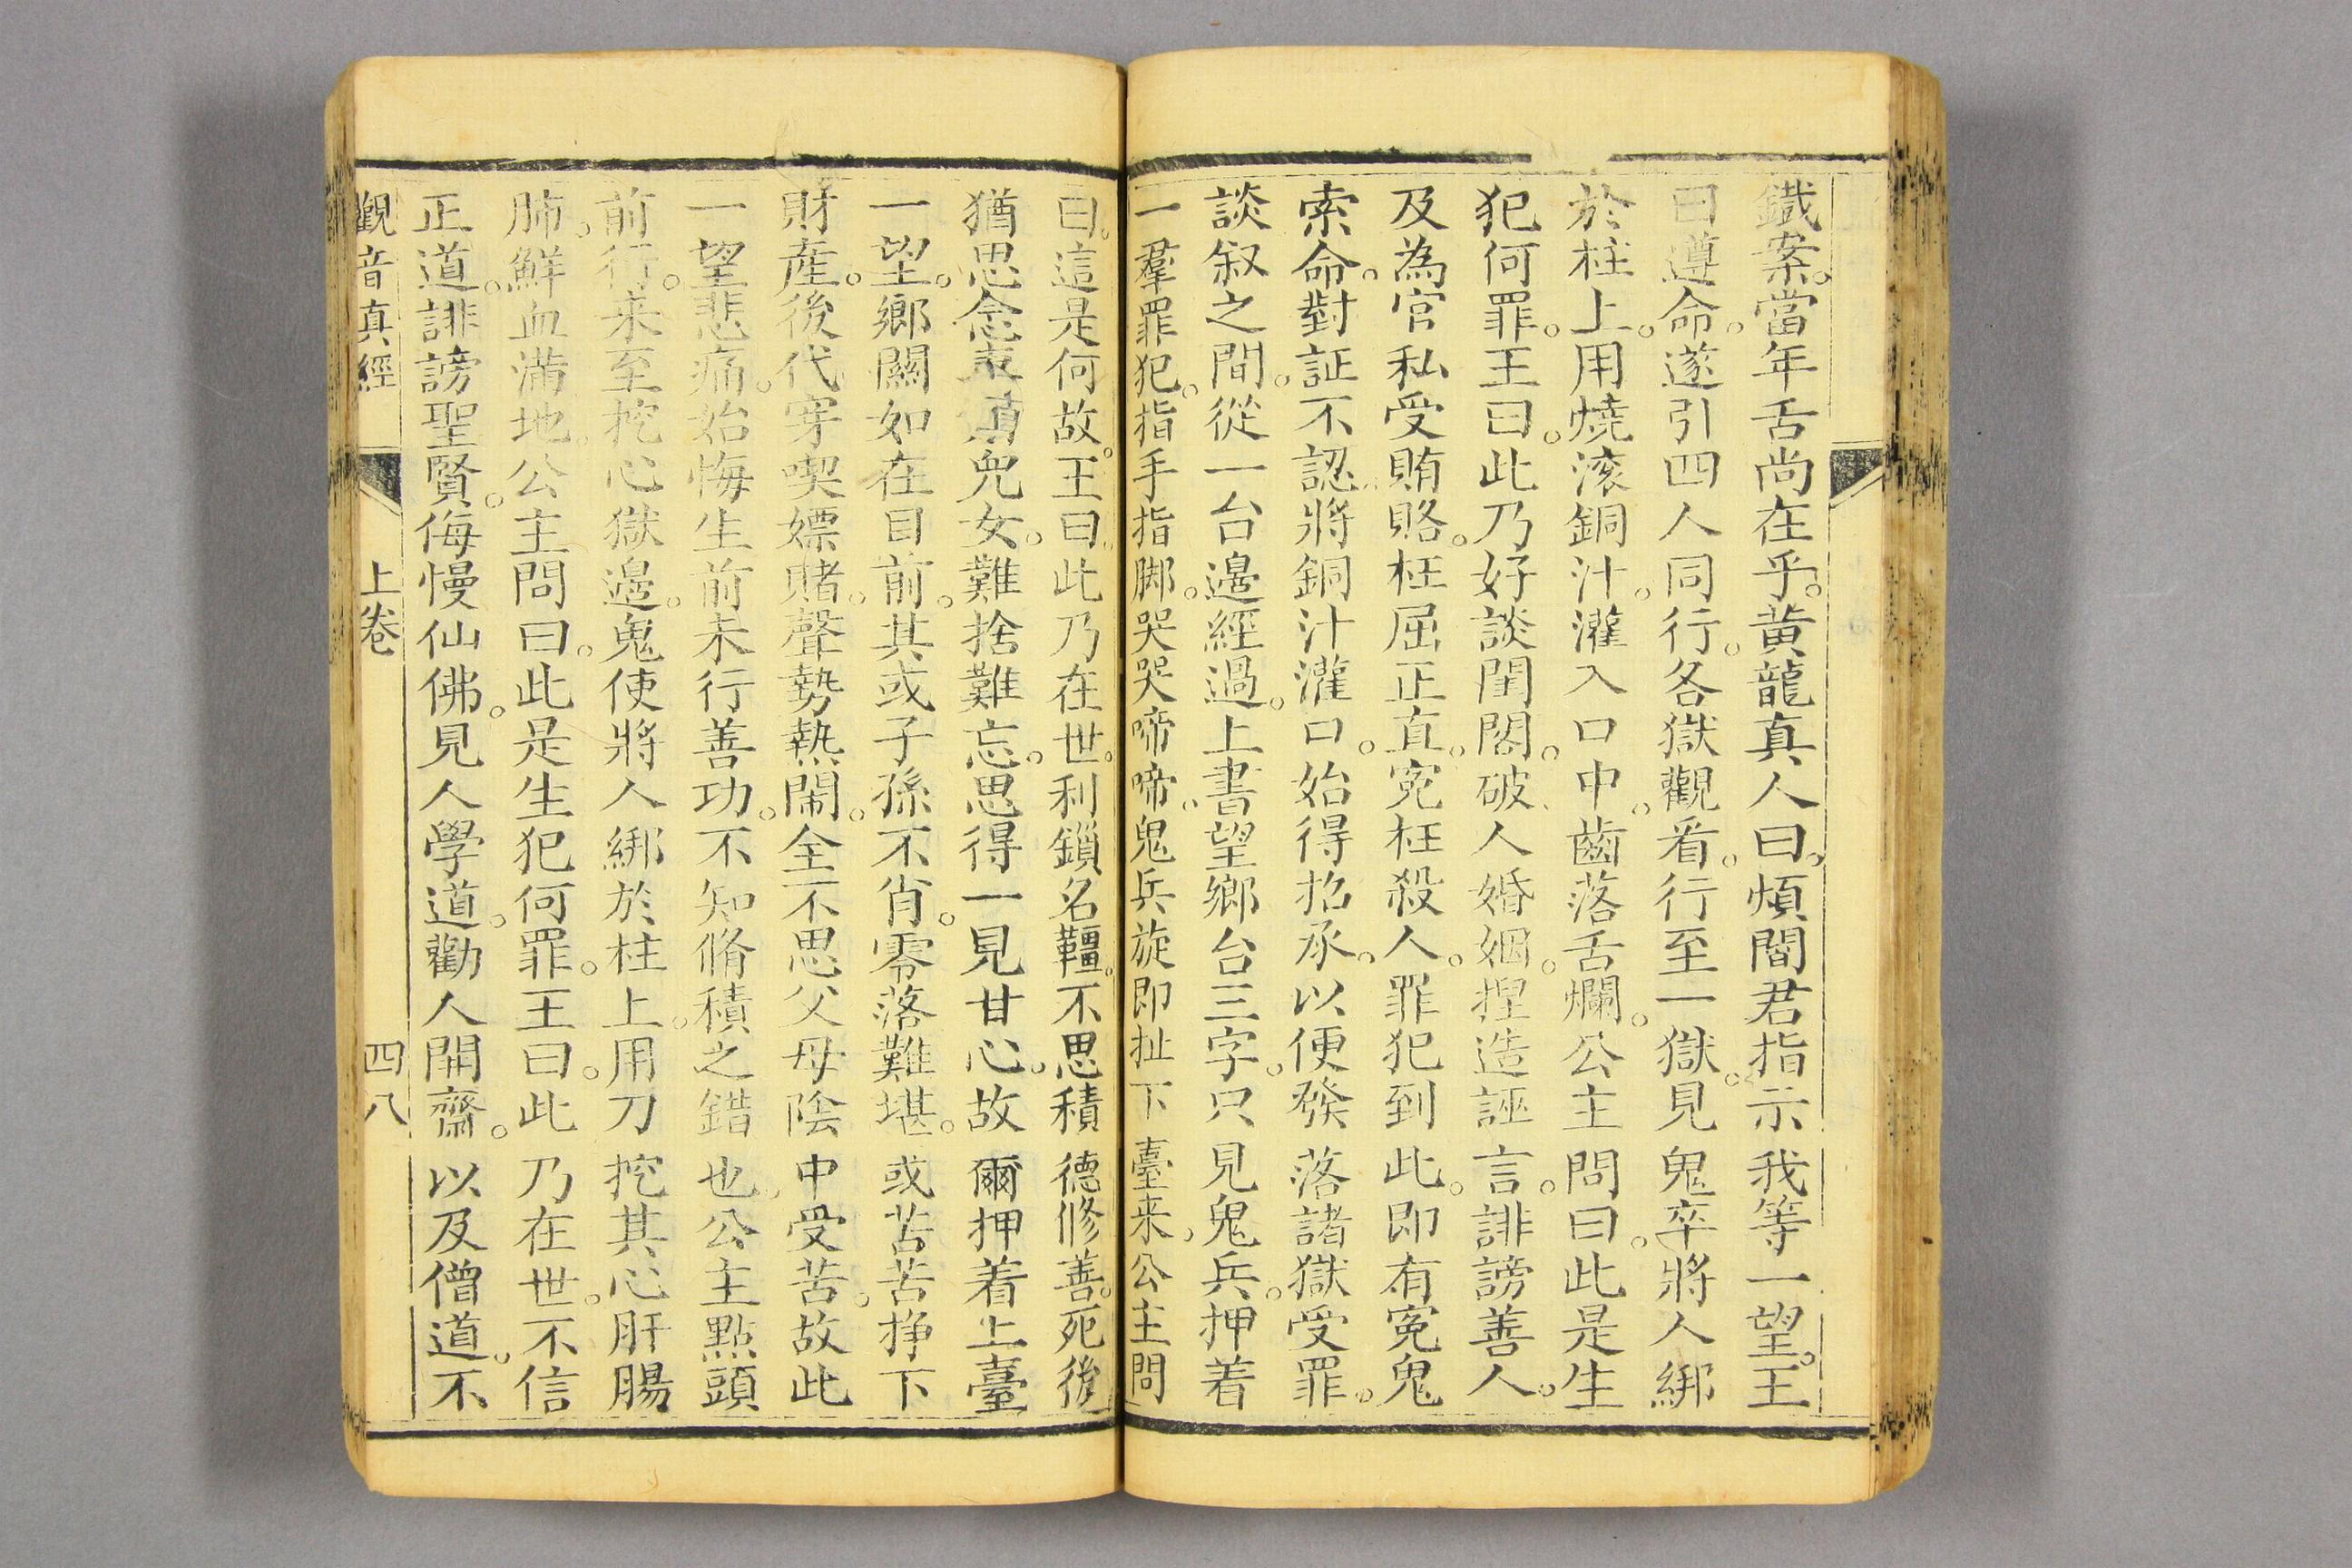 鐵案。當年舌尚在乎。黄龍真人曰。煩閻君指示我等一望。王
曰遵命。遂引四人同行。各獄觀看。行至一獄。見鬼卒將人綁
於柱上。用燒滚銅汁。灌入口中。齒落舌爛。公主問曰。此是生
犯何罪。王曰。此乃好談閨閤。破人婚姻。捏造誣言。誹謗善人。
及為官私受賄賂。枉屈正直。寃枉殺人。罪犯到此。即有寃鬼
索命。對証不認。將銅汁灌口。始得招承。以便發落諸獄受罪。
談叙之間。從一台邊經過。上書望鄉台三字。只見鬼兵。押着
一羣罪犯。指手指脚。哭哭啼啼。鬼兵旋即扯下臺来。公主問
曰。這是何故。王曰。此乃在世。利鎖名韁。不思積德修善。死後
猶思念兒女。難捨難忘。思得一見甘心。故爾押着上臺
一望。鄉關如在目前。其或子孫不肖。零落難堪。或苦苦掙下
財產。後代穿喫嫖賭。聲勢熱鬧。全不思父母陰中受苦。故此
一望悲痛。始悔生前未行善功。不知脩積之錯也。公主點頭
前行。来至挖心獄邊。鬼使將人綁於柱上。用刀挖其心肝腸
肺。鮮血滿地。公主問曰。此是生犯何罪。王曰。此乃在世。不信
正道。誹謗聖賢。侮慢仙佛。見人學道。勸人開齋。以及僧道。不
觀音真經 上卷 四八